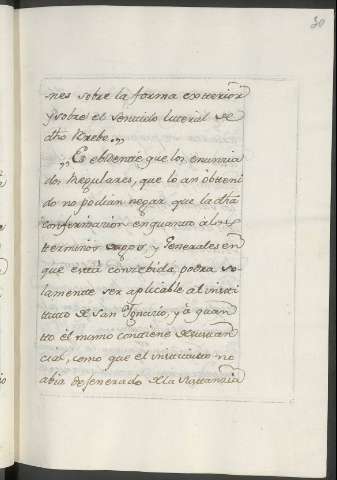 30
nes sobre la forma exterior
y sobre el sentido literal de
dho Brebe.,,
,,Es ebidente que los enunzia
dos Regulares, que lo an obteni
do no podian negar que la dha
confirmazion en quanto a los
terminos vagos, y Generales en
que està conzebida, podra so
lamente ser aplicable al insti
tuto de San Ignacio, y à quan
to èl mismo contiene de sustan
cial, como que el instituto no
abia dejenerado de la sustanzia